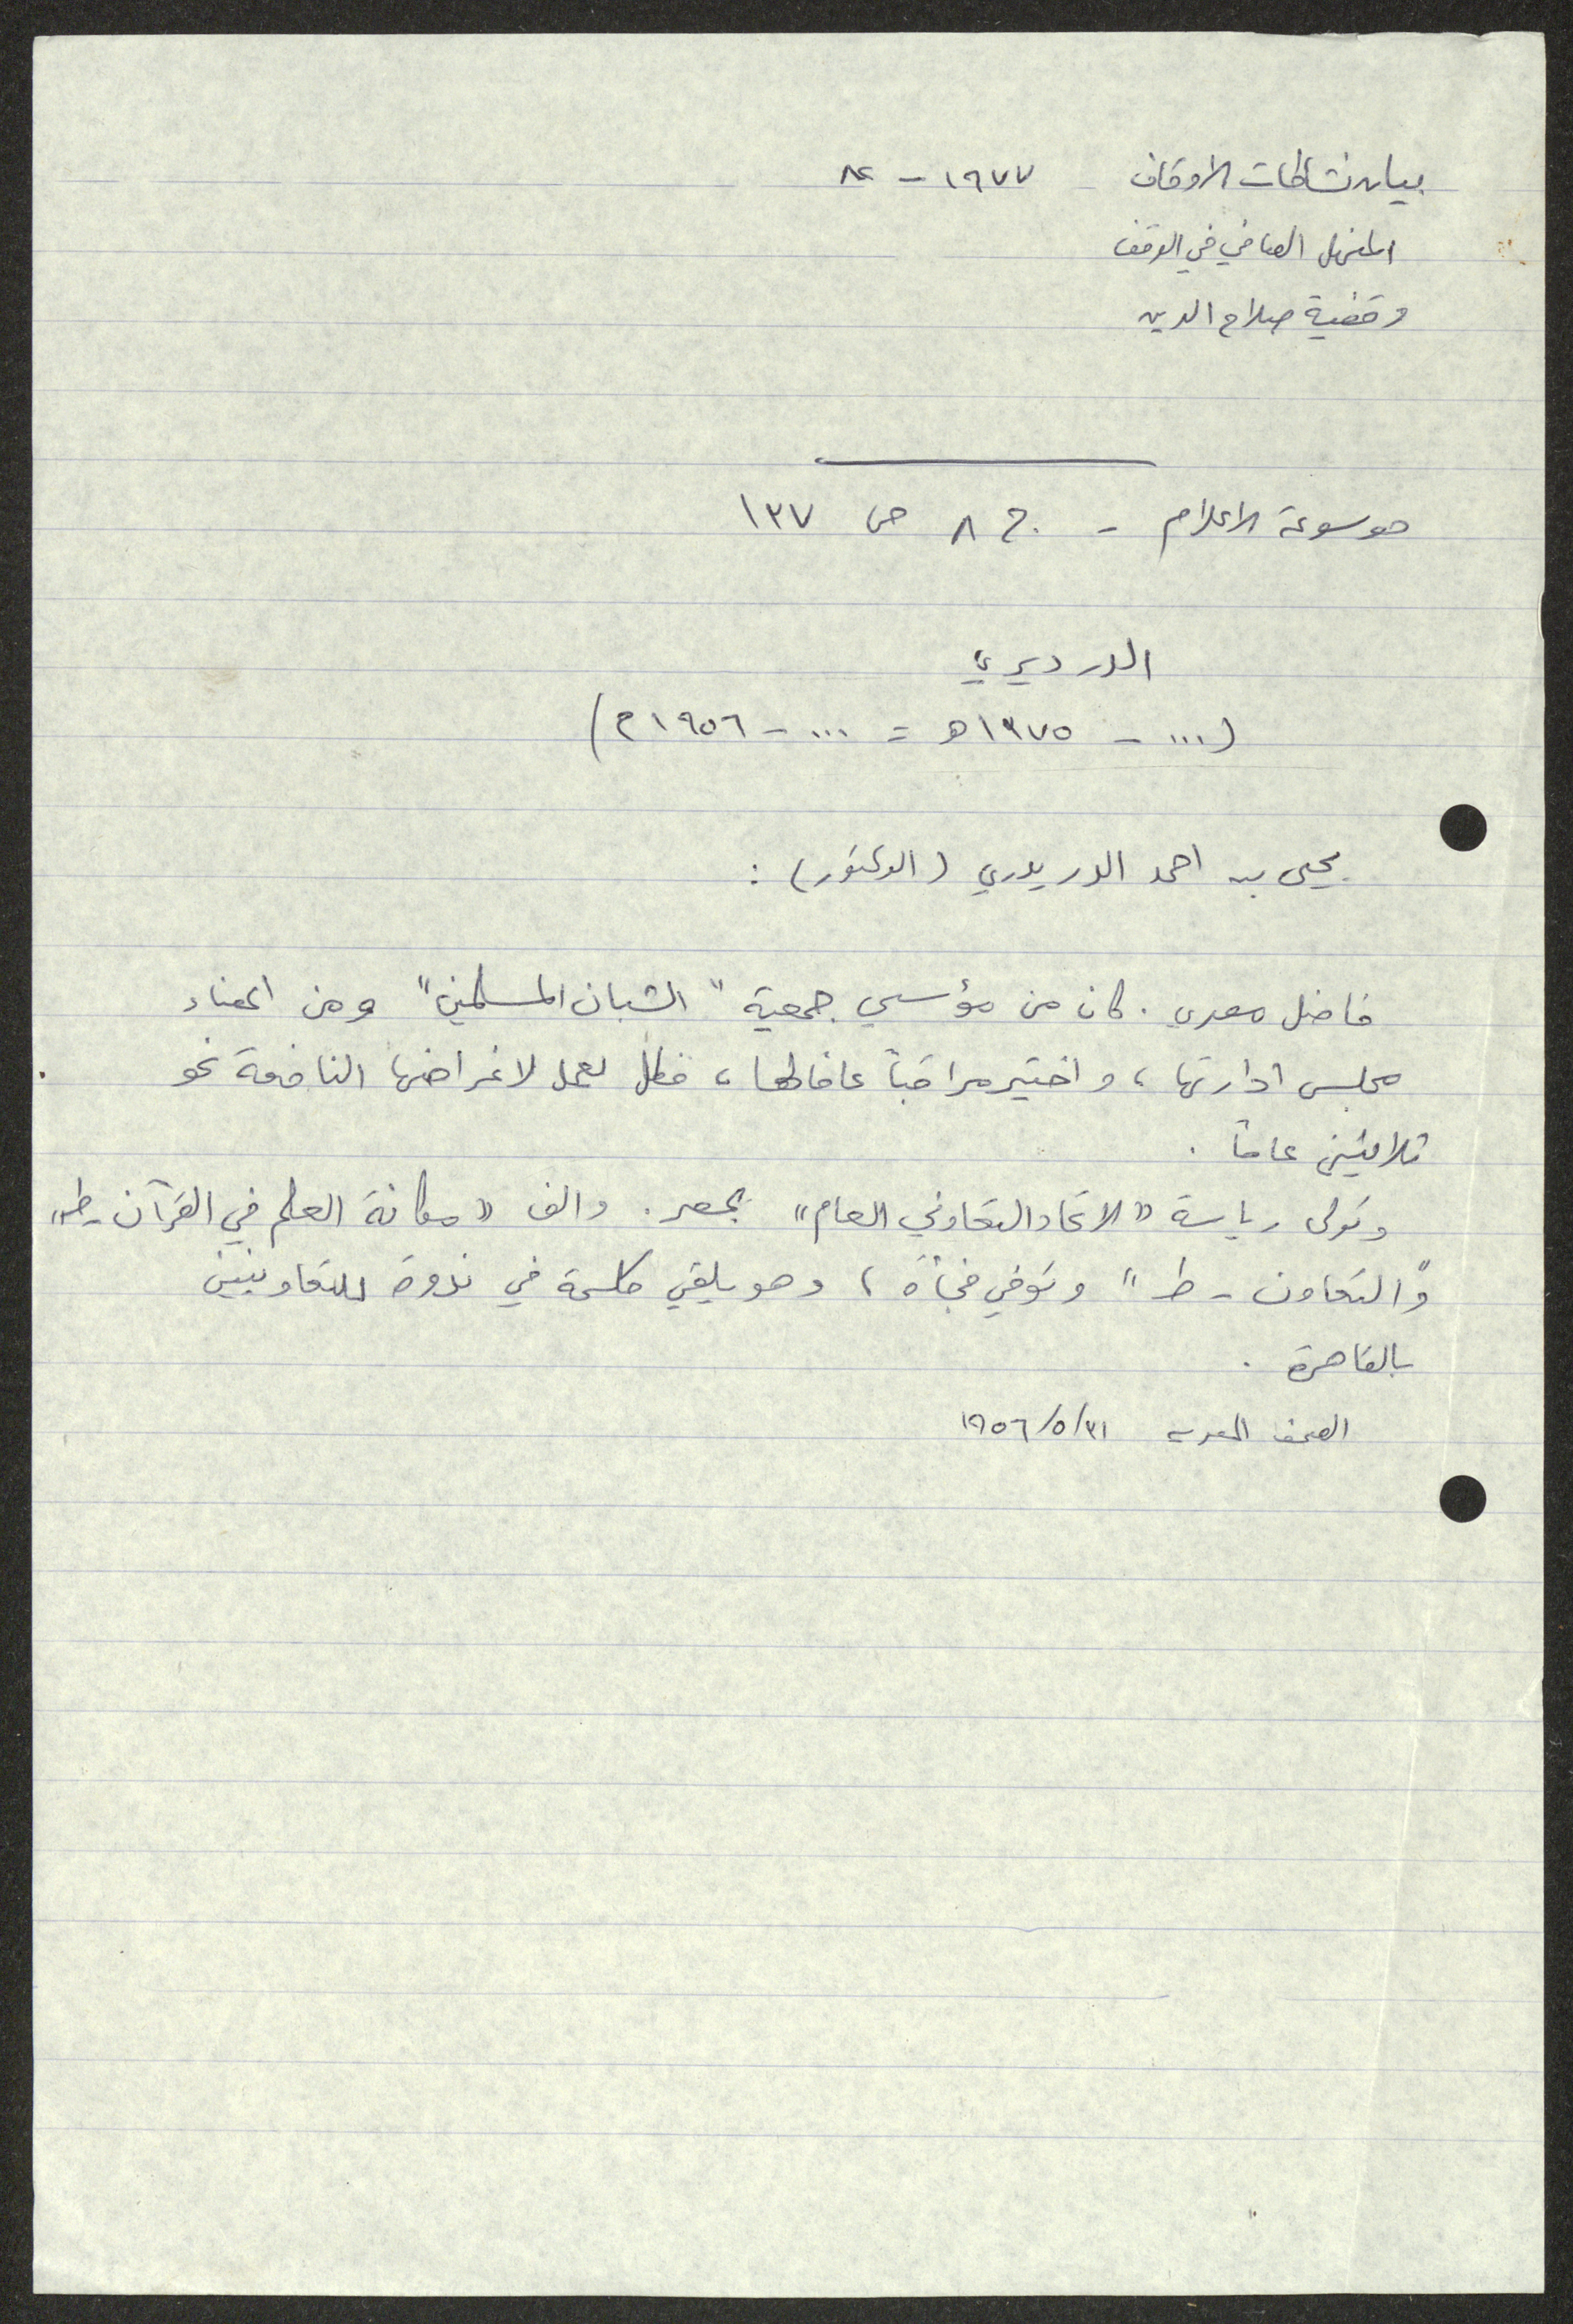 بيان نشاطات الاوقاف ١٩٧٧ - ٨٢
المنهل الصافي في الوقف
وقفية صلاح الدين
موسوعة الاعلام - ج ٨ ص ١٣٧
الدرديري
(... - ١٣٧٥ هـ = ... - ١٩٥٦ م)
يحيى بن احمد الدرديري (الدكتور) :
فاضل مصري . كان من مؤسسي جمعية "الشبان المسلمين" ومن اعضاء
مجلس ادارتها ، واختير مراقباً عاماً لها ، فظل يعمل لاغراضها النافعة نحو
ثلاثين عاماً .
وتولى رياسة "الاتحاد التعاوني العام" بمصر . والف "مكانة العلم في القرآن - ط"
و"التعاون - ط" وتوفي فجأة ، وهو يلقي كلمة في ندوة للتعاونيين
بالقاهرة .
الصحف المصرية ٣١/٥/١٩٥٦